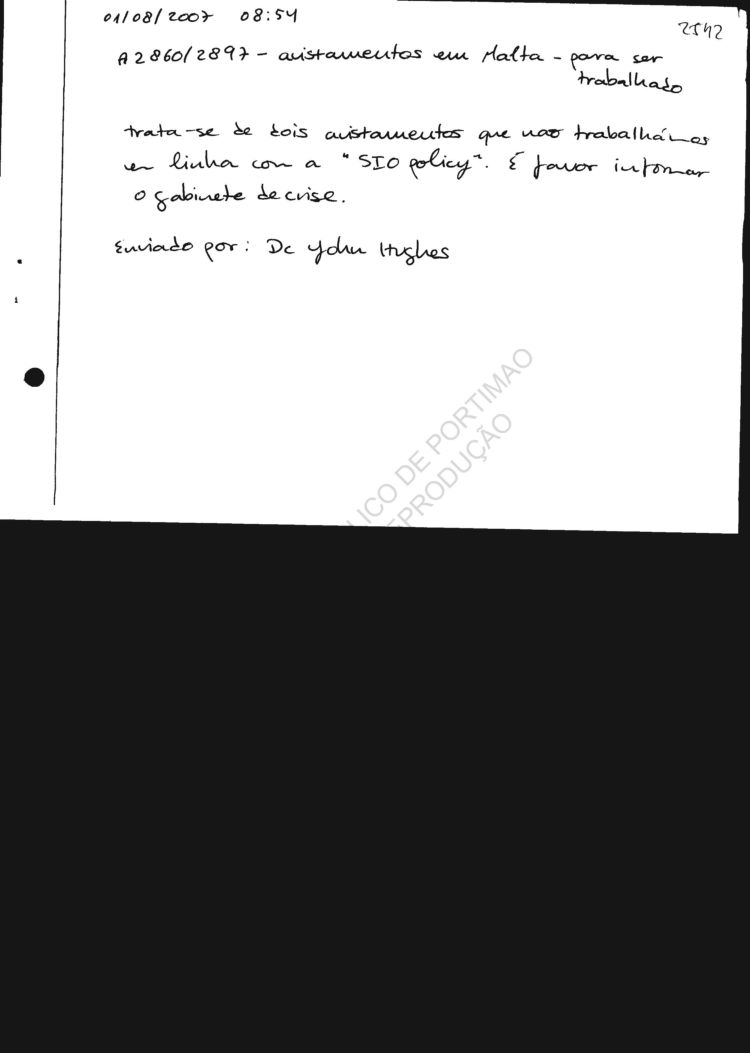 01/08/2007 08:54
2542
A2860/2897 - avistamentos em Malta - para ser
trabalhado
trata-se de dois avistamentos que não trabalhámos
en linha con a "SIO policy". É favor informar
o gabinete de crise.
Enviado por: Dc John Hughes
LICO DE PORTIMAO
EPRODUÇÃO